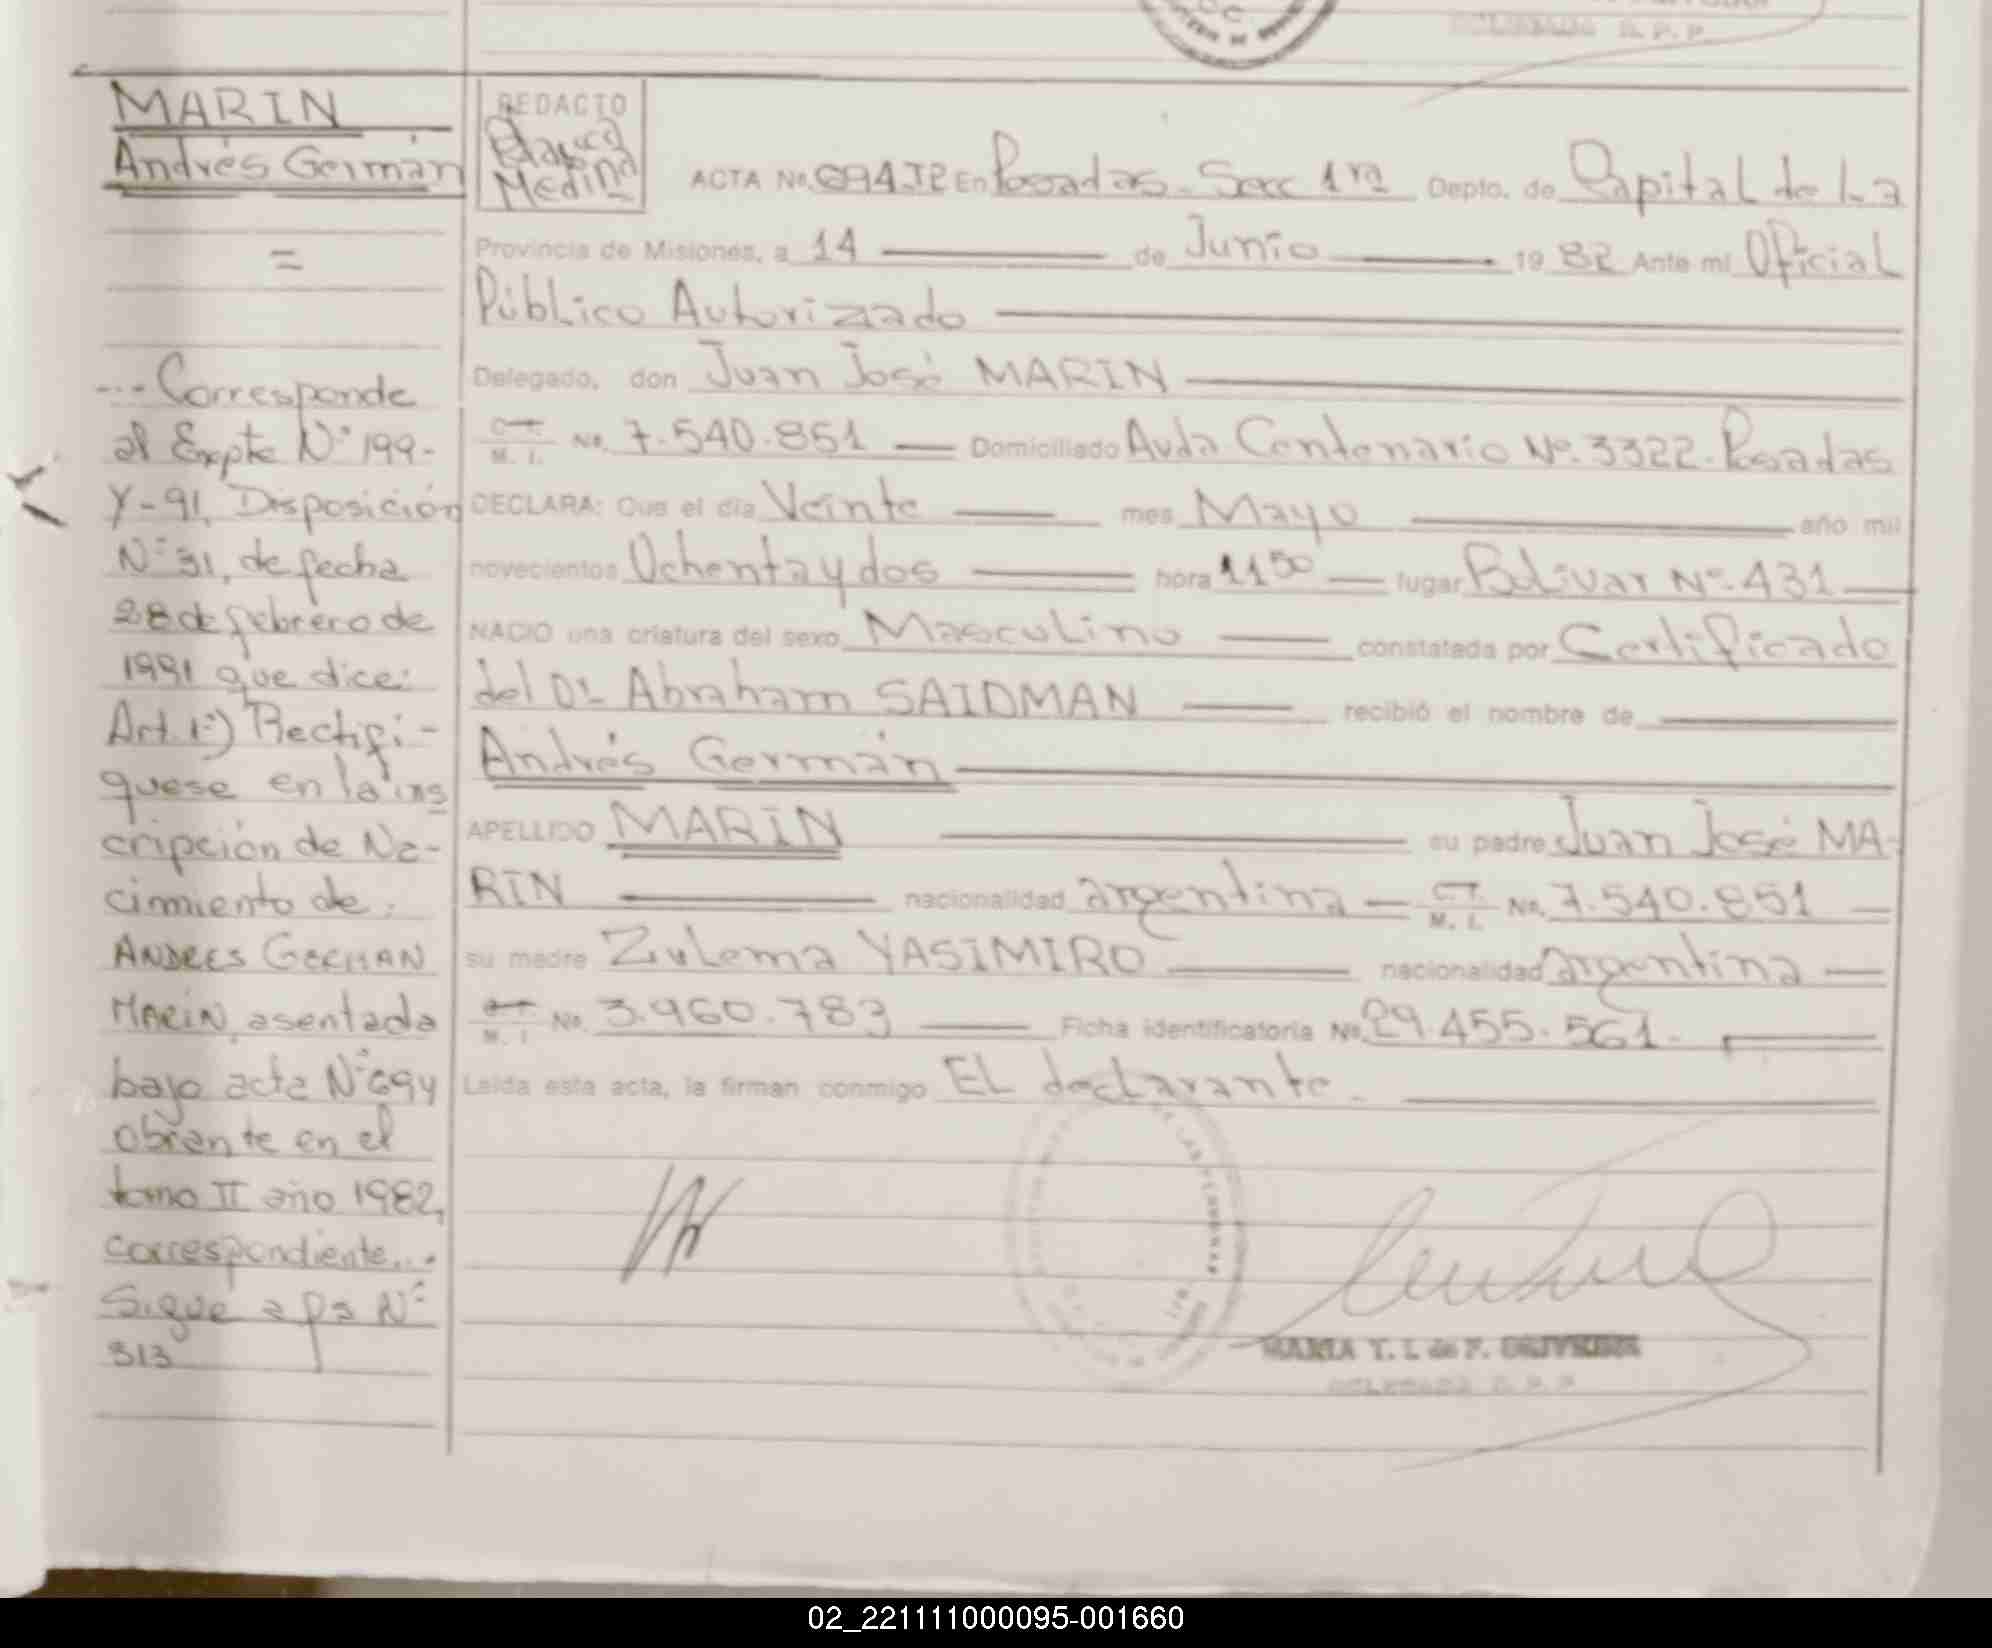 MARIN
Andrés Germán
=
--- Corresponde
al Expte Nº 199-
Y-91, Disposición
Nº 31, de fecha
28 de febrero de
1991 que dice:
Art. 1º) Rectifi-
quese en la ins
cripción de Na-
cimiento de:
ANDRES GERMAN
MARIN, asentada
bajo acta Nº 694
obrante en el
tomo II año 1982,
correspondiente...
Sigue a fs Nº
313
REDACTO
Medina
ACTA No. 694 En Posadas - Secc 1ra Depto. de Capital de La
Provincia de Misiones, a 14 de Junio 19 82 Ante mi Oficial
Público Autorizado
Delegado, don Juan José MARIN
C.I. M. I. No. 7.540.851 Domiciliado Avda Centenario Nº. 3322. Posadas
DECLARA: Que el día Veinte mes Mayo año mil
novecientos Ochenta y dos hora 11 50 lugar Bolivar Nº. 431
NACIO una criatura del sexo Masculino constatada por Certificado
del Dr Abraham SAIDMAN recibió el nombre de
Andrés Germán
APELLIDO MARIN su padre Juan José MA-
RIN nacionalidad argentina C.I. M. I. No. 7.540.851
su madre Zulema YASIMIRO nacionalidad argentina
M. I. No. 3.960.783 Ficha identificatoria No. 29.455.561.
Leída esta acta, la firman conmigo EL declarante.
DE LAS PERSONAS
MARIA T. I. de F. OLIVEIRA
DELEGADA R. P. P.
02_221111000095-001660